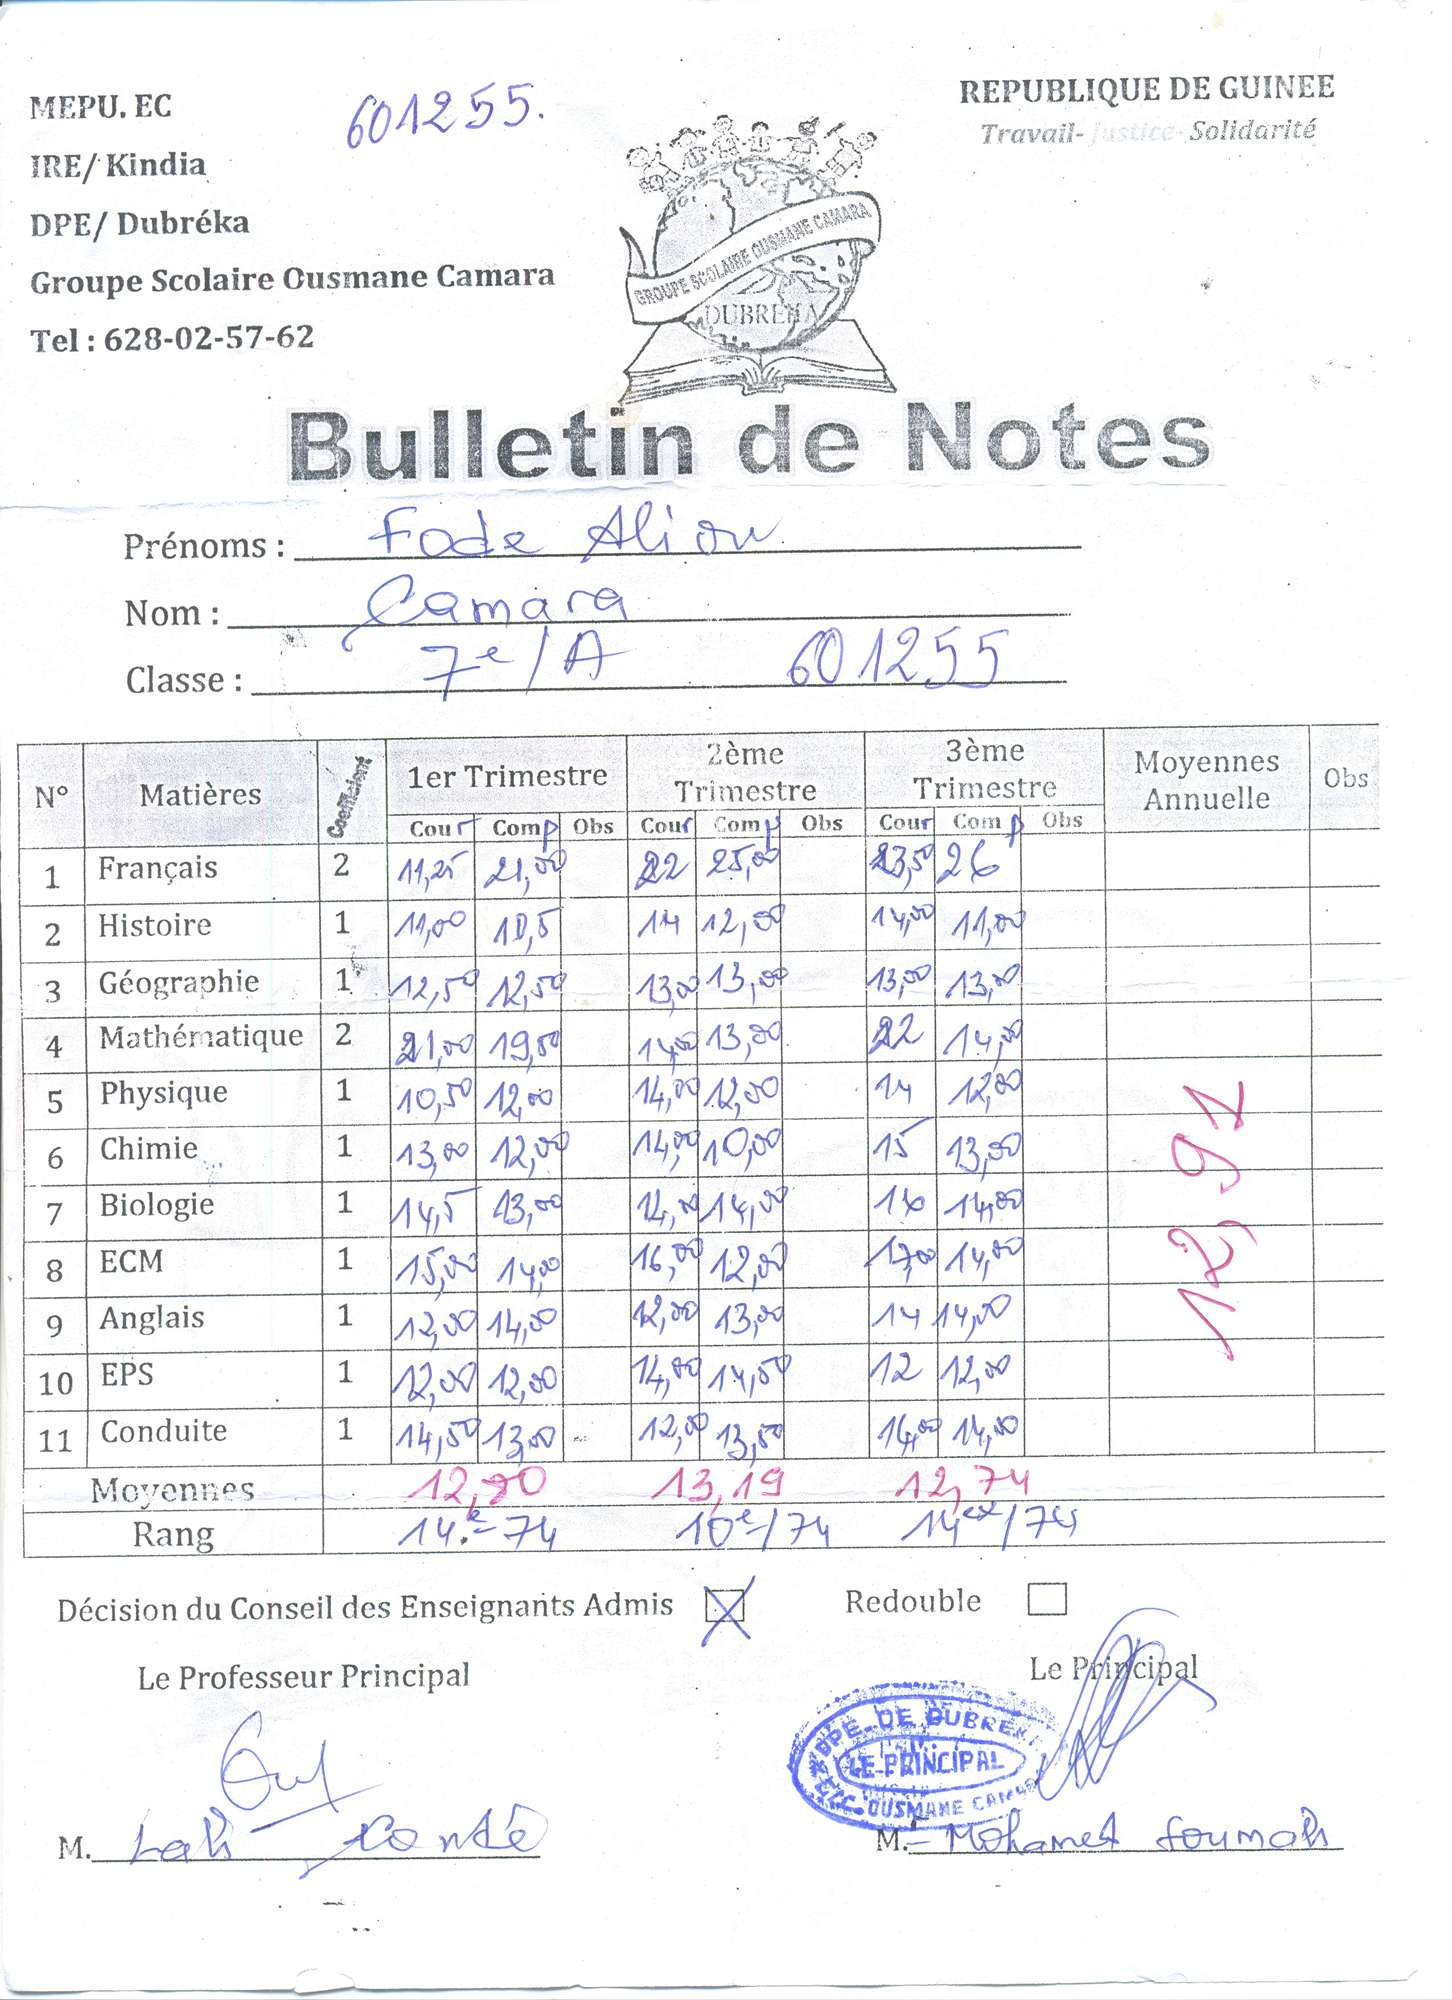 MEPU. EC
601255.
REPUBLIQUE DE GUINEE
Travail- justice- Solidarité
IRE/ Kindia
DPE/ Dubréka
Groupe Scolaire Ousmane Camara
Tel : 628-02-57-62
GROUPE SCOLAIRE OUSMANE CAMARA
DUBREKA
Bulletin de Notes
Prénoms : Fode Aliou
Nom : Camara
Classe : 7e/A 601255
N° Matières Coefficient 1er Trimestre 2ème Trimestre 3ème Trimestre Moyennes Annuelle Obs
Cour Comp Obs Cour Comp Obs Cour Comp Obs
1 Français 2 11,25 21,00 22 25,00 23,50 26
2 Histoire 1 11,00 10,5 14 12,00 14,00 11,00
3 Géographie 1 12,50 12,50 13,00 13,00 13,00 13,00
4 Mathématique 2 21,00 19,50 14,00 13,00 22 14,00
5 Physique 1 10,50 12,00 14,00 12,00 14 12,00
6 Chimie 1 13,00 12,00 14,00 10,00 15 13,00
7 Biologie 1 14,5 13,00 14,00 14,00 16 14,00
8 ECM 1 15,00 14,00 16,00 12,00 17,00 14,00
9 Anglais 1 12,00 14,00 12,00 13,00 14 14,00
10 EPS 1 12,00 12,00 14,00 14,50 12 12,00
11 Conduite 1 14,50 13,00 12,00 13,50 14,00 14,00
12,91
Moyennes 12,80 13,19 12,74
Rang 14e- 74 10e/74 14ex/74
Décision du Conseil des Enseignants Admis X Redouble
Le Professeur Principal
Le Principal
DPE-DE DUBREKA
LE PRINCIPAL
OUSMANE CAMARA
M. Conté
M.- Mohamed Soumah